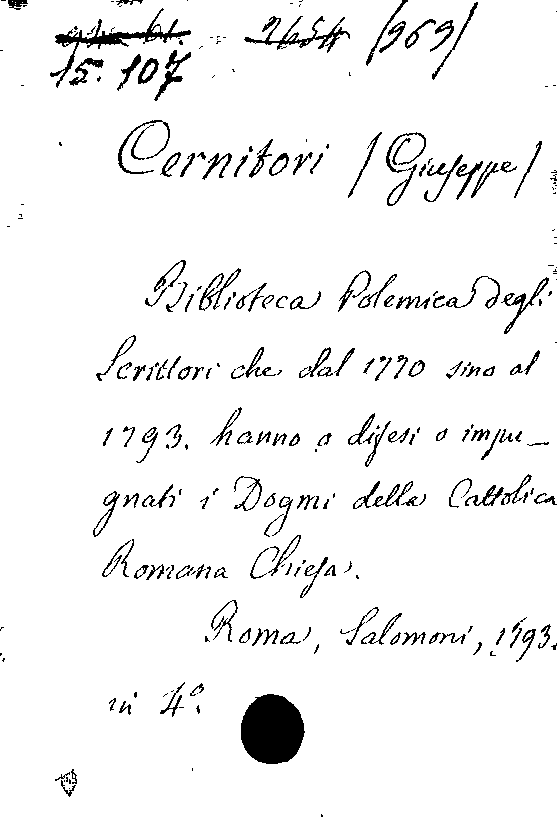 2654 /969/
15. 107
Cernitori /Giuseppe/
Biblioteca Polemica degli
Scrittori che dal 1770 sino al
1793. hanno o difesi o impu_
gnati i Dogmi della Cattolica
Romana Chiesa.
Roma, Salomoni, 1793.
in 4°.